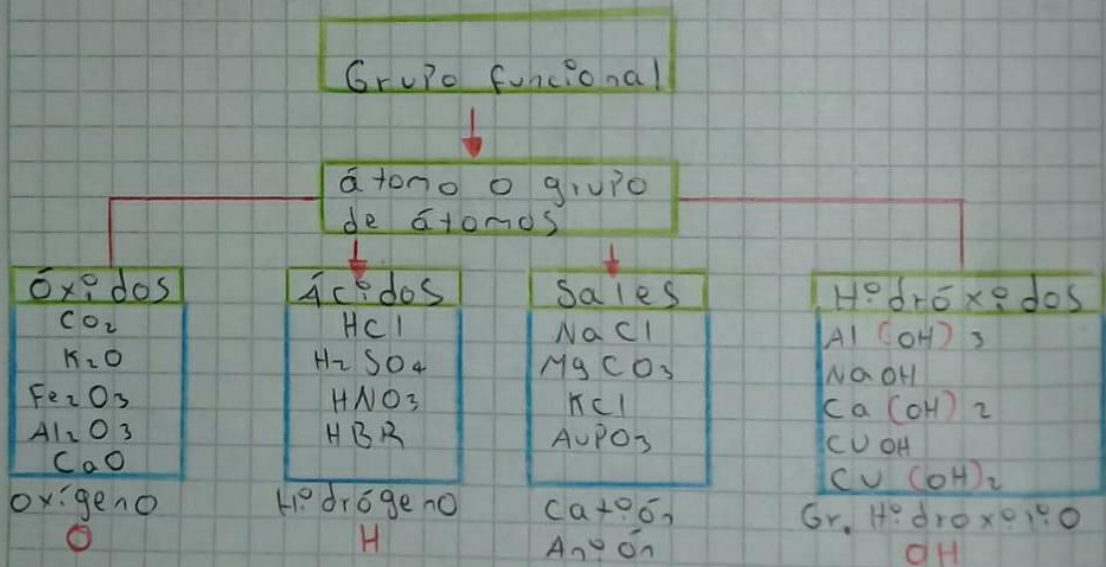 Grupo funcional
átomo o grupo
de átomos
Óxidos
CO2
K2O
Fe2O3
Al2O3
CaO
Oxígeno
O
Ácidos
HCl
H2SO4
HNO3
HBR
Hidrógeno
H
Sales
NaCl
MgCO3
KCl
AuPO3
Catión
Anión
Hidróxidos
Al(OH)3
NaOH
Ca(OH)2
CuOH
Cu(OH)2
Gr. Hidroxilo
OH